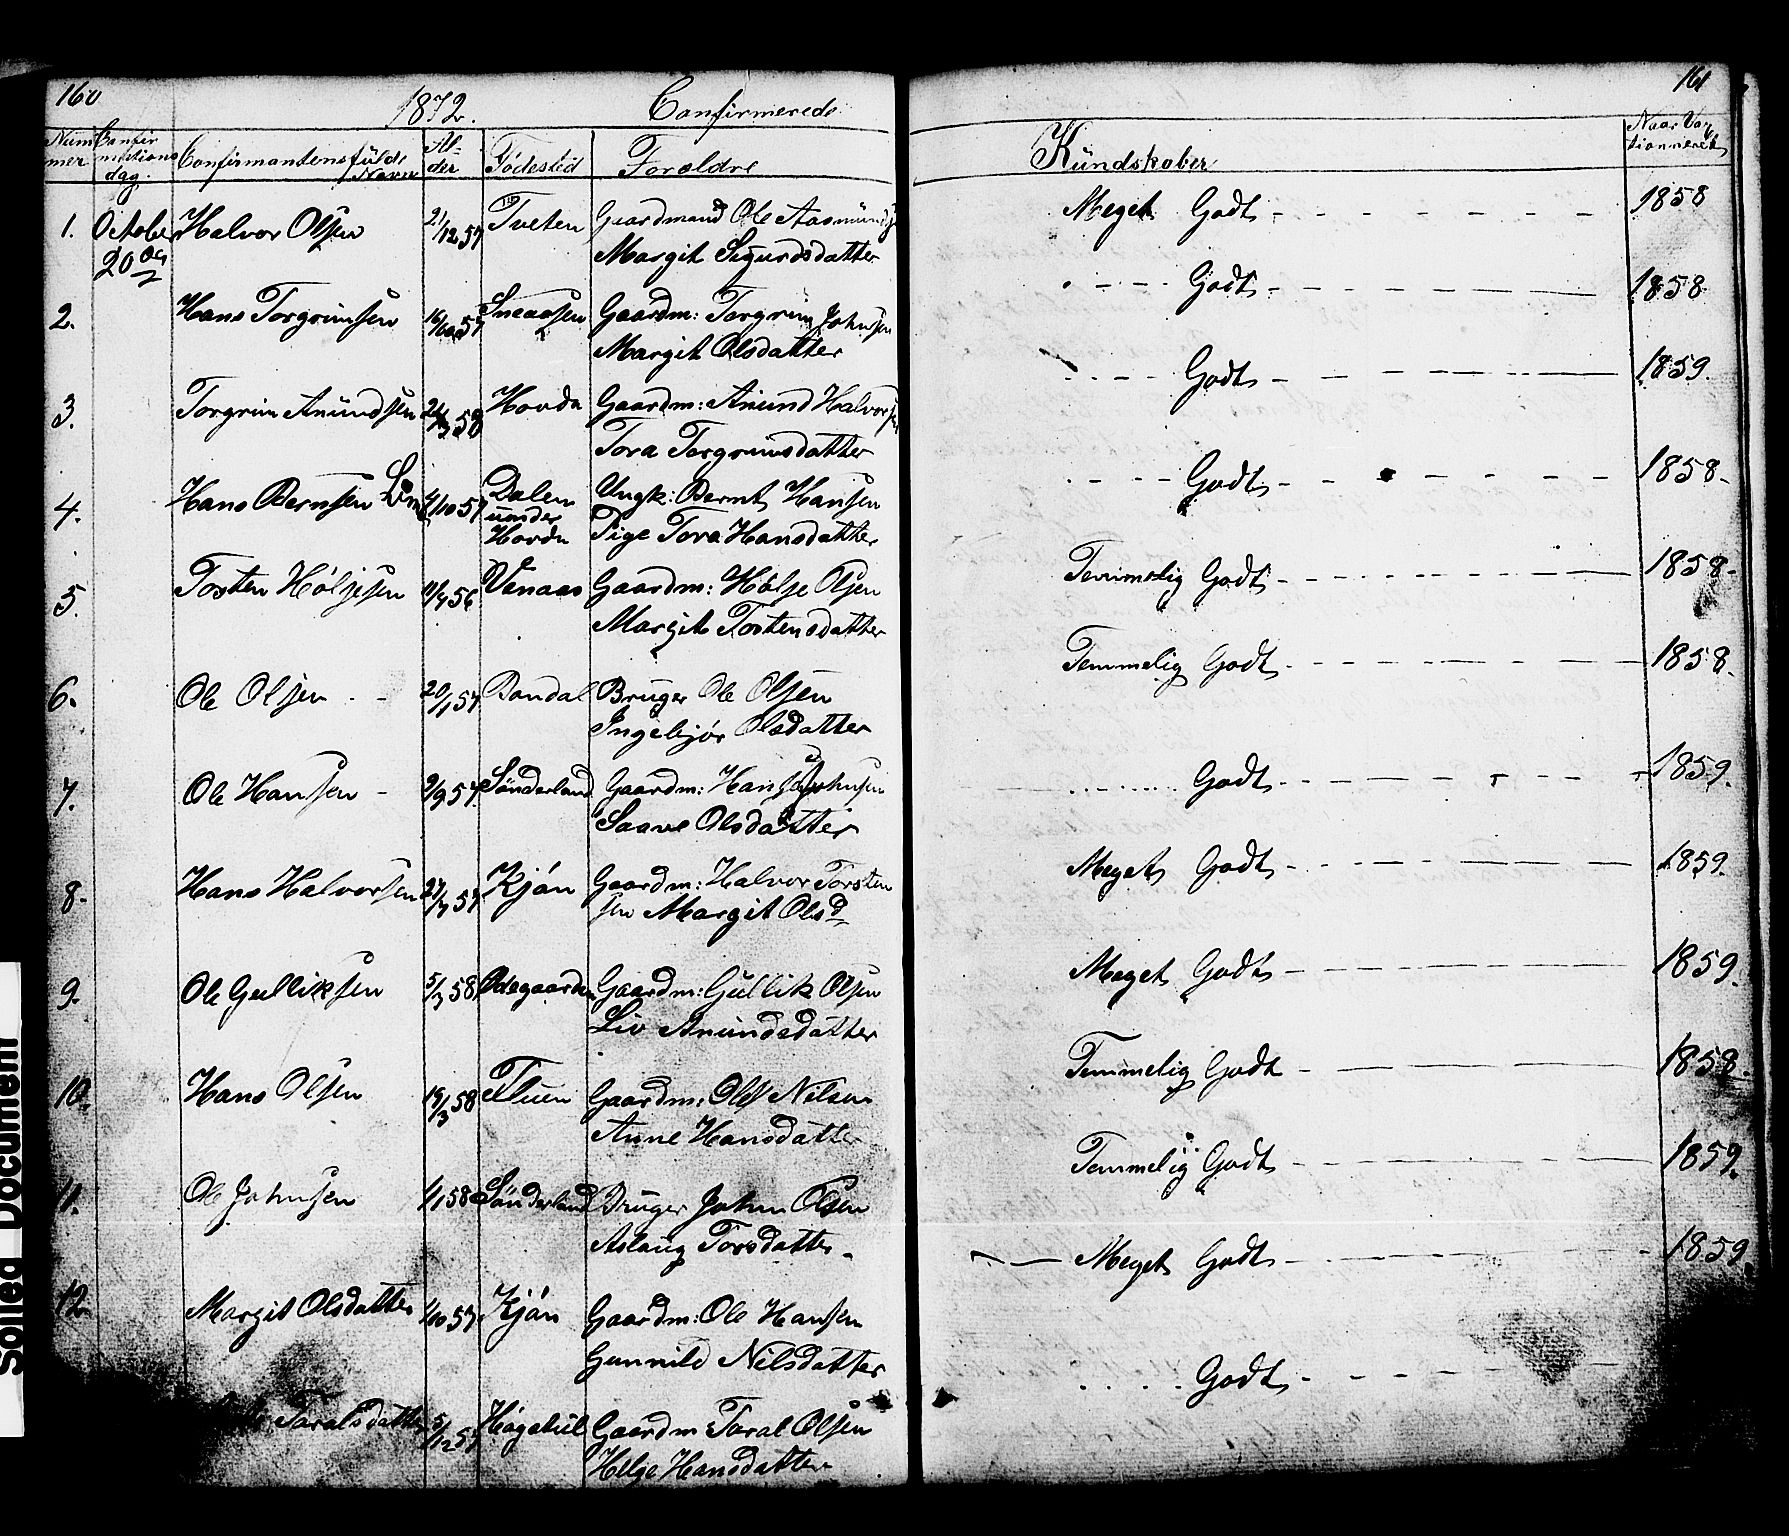 160
1872. Confirmerede
Num mer Confir mations dag. Confirmantens fulde Navn Al- der Födested Foræeldre
1. October 20de Halvor Olsen 21/12 57 Tveten Gaardmand Ole Aasmunds
Margit Sigurdsdatter
2. Hans Torgrimsen 16/10 57 Sneaasen Gaardm: Torgrim Johnsen
Margit Olsdatter
3. Torgrim Anundsen 58 Hovda Gaardm: Anund Halvorsen
Tora Torgrimsdatter
4. Hans Bernsen 4/10 57 Dalen Ungk: Bernt Hansen
under
Hovda Pige Tora Hansdatter
5. Tosten Höljesen 11/4 56 Venaas Gaardm: Hölje Olsen
Margit Tostensdatter
6. Ole Olsen 20/1 57 Bondal Bruger Ole Olsen
Ingebjör Olsdatter
7. Ole Hansen 9/9 57 Sönderland Gaardm: Hans Johnsen
Saave Olsdatter
8. Hans Halvorsen 27/7 57 Kjön Gaardm: Halvor Torsten
sen Margit Olsd
9. Ole Gulliksen 5/3 58 Ödegaarden Gaardm: Gullik Olsen
Liv Anundsdatter
10. Hans Olsen 19/3 58 Gaardm: Ole Nilsen
Anne Hansdatter
11. Ole Johnsen 1/1 58 Sönderland Bruger John Olsen
Aslaug Torsdatter
12. Margit Olsdatter 1/10 57 Kjön Gaardm: Ole Hansen
Gunnild Nilsdatter
Taralsdatter 5/12 57 Högekul Gaardm Taral Olsen
Helge Hansdatter
161
Kundskaber Naar Vac tionneret
Meget Godt 1858
Godt 1858
Godt 1859.
Godt 1858
Temmelig Godt 1858
Temmelig Godt 1858.
Godt 1859.
Meget Godt 1859.
Meget Godt 1859.
Temmelig Godt 1858.
Temmelig Godt 1859.
Meget Godt 1859.
Godt
Soiled Document